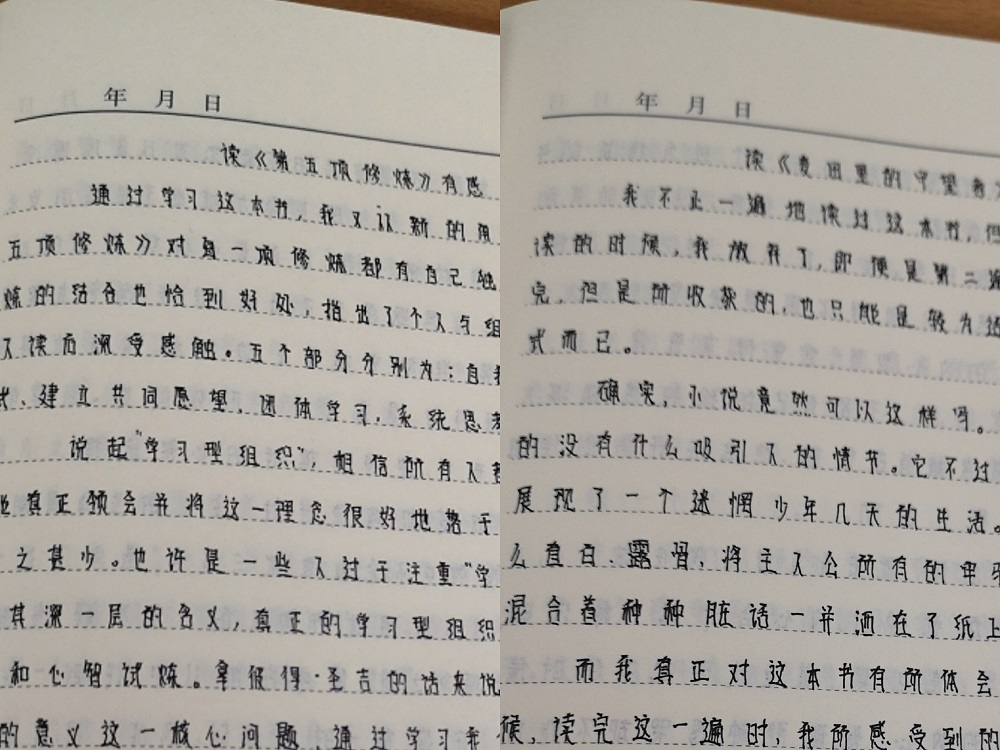 年 月 日
读《第五项修炼》有感
通过学习这本书,我又认新的
五项修炼》对每一项修炼都有自己独
炼的结合也恰到好处,指出了个人与组
人读而深受感触。五个部分分别为:自我
建立共同愿望,团体学习,系统思考
说起"学习型组织",相信所有人都
真正领会并将这一理念很好地落于
之甚少。也许是一些人过于注重"学
其深一层的含义,真正的学习型组织
和心智试炼。拿彼得·圣吉的话来说
的意义这一核心问题,通过学习我
年 月 日
读《麦田里的守望者
我不止一遍地读过这本书,但
读的时候,我放弃了,即便是第二遍
完,但是所收获的,也只能是较为
式而已。
确实,小说竟然可以这样写。
的没有什么吸引人的情节。它不过
展现了一个迷惘少年几天的生活。
么直白、露骨,将主人公所有的
混合着种种脏话一并洒在了纸上
而我真正对这本书有所体会
候,读完这一遍时,我所感受到的